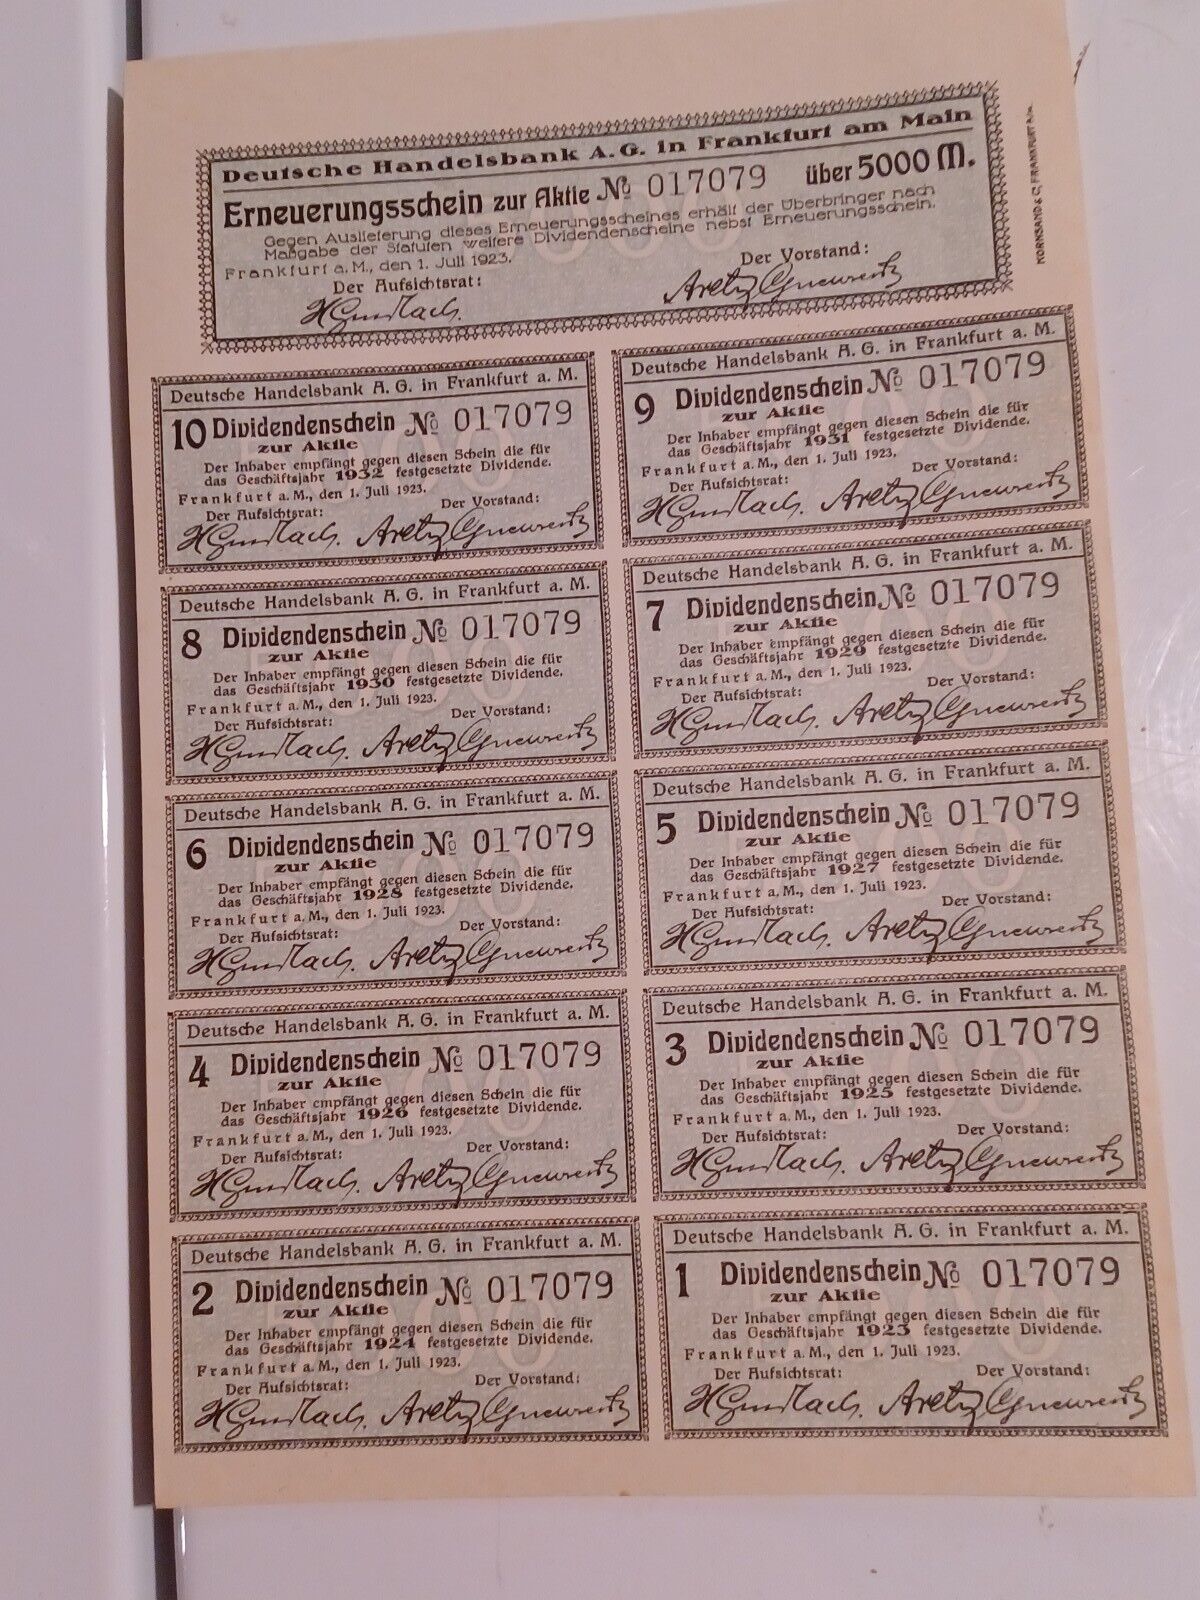 Deutsche Handelsbank A.G. in Frankfurt am Main
Erneuerungsschein zur Aktie № 017079 über 5000 M.
Gegen Auslieferung dieses Erneuerungsscheines erhält der Überbringer nach
Maßgabe der Statuten weitere Dividendenscheine nebst Erneuerungsschein.
Frankfurt a. M., den 1. Juli 1923.
Der Aufsichtsrat: Der Vorstand:
Deutsche Handelsbank A. G. in Frankfurt a. M.
10 Dividendenschein № 017079
zur Aktie
Der Inhaber empfängt gegen diesen Schein die für
das Geschäftsjahr 1932 festgesetzte Dividende.
Frankfurt a. M., den 1. Juli 1923.
Der Aufsichtsrat: Der Vorstand:
Deutsche Handelsbank A. G. in Frankfurt a. M.
9 Dividendenschein № 017079
zur Aktie
Der Inhaber empfängt gegen diesen Schein die für
das Geschäftsjahr 1931 festgesetzte Dividende.
Frankfurt a. M., den 1. Juli 1923.
Der Aufsichtsrat: Der Vorstand:
Deutsche Handelsbank A. G. in Frankfurt a. M.
8 Dividendenschein № 017079
zur Aktie
Der Inhaber empfängt gegen diesen Schein die für
das Geschäftsjahr 1930 festgesetzte Dividende.
Frankfurt a. M., den 1. Juli 1923.
Der Aufsichtsrat: Der Vorstand:
Deutsche Handelsbank A. G. in Frankfurt a. M.
7 Dividendenschein № 017079
zur Aktie
Der Inhaber empfängt gegen diesen Schein die für
das Geschäftsjahr 1929 festgesetzte Dividende.
Frankfurt a. M., den 1. Juli 1923.
Der Aufsichtsrat: Der Vorstand:
Deutsche Handelsbank A. G. in Frankfurt a. M.
6 Dividendenschein № 017079
zur Aktie
Der Inhaber empfängt gegen diesen Schein die für
das Geschäftsjahr 1928 festgesetzte Dividende.
Frankfurt a. M., den 1. Juli 1923.
Der Aufsichtsrat: Der Vorstand:
Deutsche Handelsbank A. G. in Frankfurt a. M.
5 Dividendenschein № 017079
zur Aktie
Der Inhaber empfängt gegen diesen Schein die für
das Geschäftsjahr 1927 festgesetzte Dividende.
Frankfurt a. M., den 1. Juli 1923.
Der Aufsichtsrat: Der Vorstand:
Deutsche Handelsbank A. G. in Frankfurt a. M.
4 Dividendenschein № 017079
zur Aktie
Der Inhaber empfängt gegen diesen Schein die für
das Geschäftsjahr 1926 festgesetzte Dividende.
Frankfurt a. M., den 1. Juli 1923.
Der Aufsichtsrat: Der Vorstand:
Deutsche Handelsbank A. G. in Frankfurt a. M.
3 Dividendenschein № 017079
zur Aktie
Der Inhaber empfängt gegen diesen Schein die für
das Geschäftsjahr 1925 festgesetzte Dividende.
Frankfurt a. M., den 1. Juli 1923.
Der Aufsichtsrat: Der Vorstand:
Deutsche Handelsbank A. G. in Frankfurt a. M.
2 Dividendenschein № 017079
zur Aktie
Der Inhaber empfängt gegen diesen Schein die für
das Geschäftsjahr 1924 festgesetzte Dividende.
Frankfurt a. M., den 1. Juli 1923.
Der Aufsichtsrat: Der Vorstand:
Deutsche Handelsbank A. G. in Frankfurt a. M.
1 Dividendenschein № 017079
zur Aktie
Der Inhaber empfängt gegen diesen Schein die für
das Geschäftsjahr 1923 festgesetzte Dividende.
Frankfurt a. M., den 1. Juli 1923.
Der Aufsichtsrat: Der Vorstand: